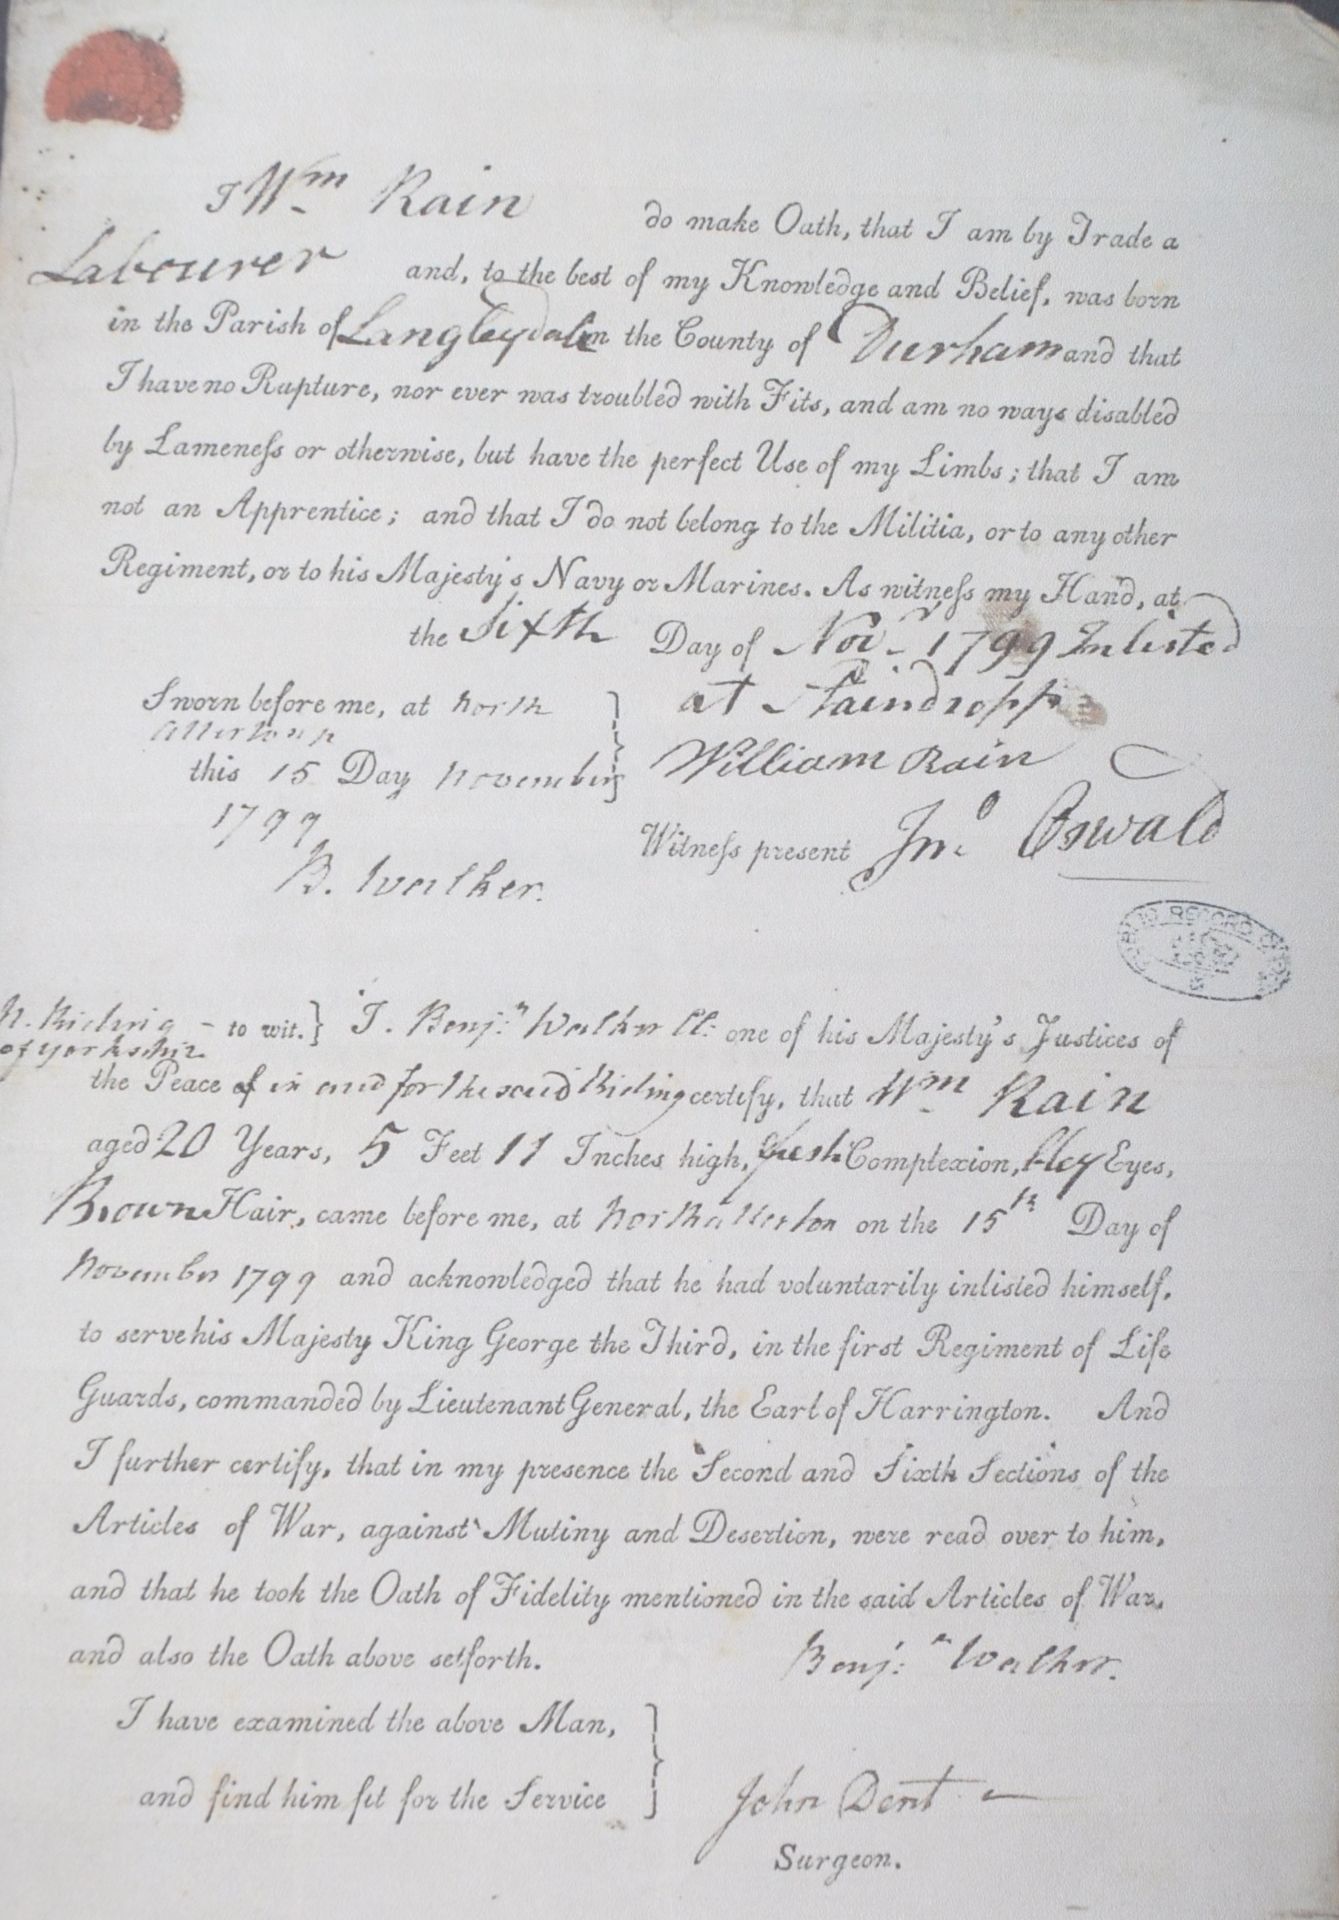 I Wm Rain do make Oath, that I am by Trade a
Labourer and, to the best of my Knowledge and Belief, was born
in the Parish of Langleydale in the County of Durham and that
I have no Rupture, nor ever was troubled with Fits, and am no ways disabled
by Lameneſs or otherwise, but have the perfect Use of my Limbs; that I am
not an Apprentice; and that I do not belong to the Militia, or to any other
Regiment, or to his Majesty's Navy or Marines. As witneſs my Hand, at
the Sixth Day of Novr 1799 Inlisted
at Staindropp
Sworn before me, at North
Allerton
this 15 Day November
1799
B. Walker.
William Rain
Witneſs present Jno Oswald
PUBLIC RECORD OFFICE
N. Riding
of Yorkshire - to wit. } I. Benjn Walker one of his Majesty's Justices of
the Peace of in and for the said Riding certify, that Wm Rain
aged 20 Years, 5 Feet 11 Inches high, fresh Complexion, Eyes,
Brown Hair, came before me, at Northallerton on the 15th Day of
November 1799 and acknowledged that he had voluntarily inlisted himself,
to serve his Majesty King George the Third, in the first Regiment of Life
Guards, commanded by Lieutenant General, the Earl of Harrington. And
I further certify, that in my presence the Second and Sixth Sections of the
Articles of War, against Mutiny and Desertion, were read over to him,
and that he took the Oath of Fidelity mentioned in the said Articles of War,
and also the Oath above setforth.
Benj:n Walker.
I have examined the above Man,
and find him fit for the Service
John Dent
Surgeon.